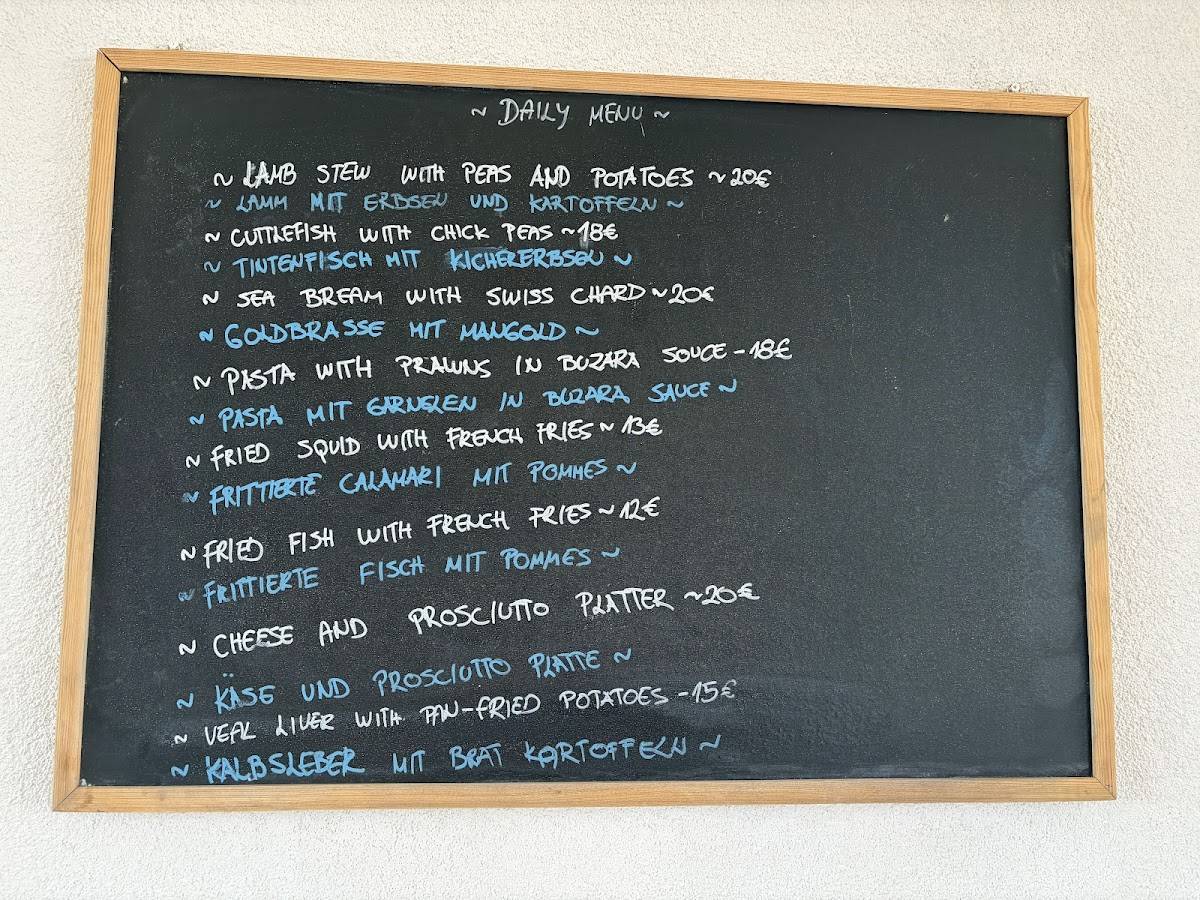 ~ DAILY MENU ~
~ LAMB STEW WITH PEAS AND POTATOES ~ 20€
~ LAMM MIT ERDSEN UND KARTOFFELN ~
~ CUTTLEFISH WITH CHICK PEAS ~ 18€
~ TINTENFISCH MIT KICHERERBSEN ~
~ SEA BREAM WITH SWISS CHARD ~ 20€
~ GOLDBRASSE MIT MANGOLD ~
~ PASTA WITH PRAWNS IN BUZARA SOUCE - 18€
~ PASTA MIT GARNELEN IN BUZARA SAUCE ~
~ FRIED SQUID WITH FRENCH FRIES ~ 13€
~ FRITTIERTE CALAMARI MIT POMMES ~
~ FRIED FISH WITH FRENCH FRIES ~ 12€
~ FRITTIERTE FISCH MIT POMMES ~
~ CHEESE AND PROSCIUTTO PLATTER ~ 20€
~ KÄSE UND PROSCIUTTO PLATTE ~
~ VEAL LIVER WITH PAN-FRIED POTATOES - 15€
~ KALBSLEBER MIT BRAT KARTOFFELN ~